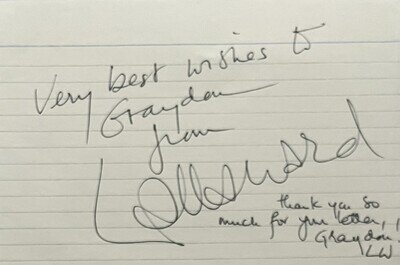 Very best wishes to
Graydon
from
Lalla Ward
thank you so
much for your letter,
Graydon.
LW